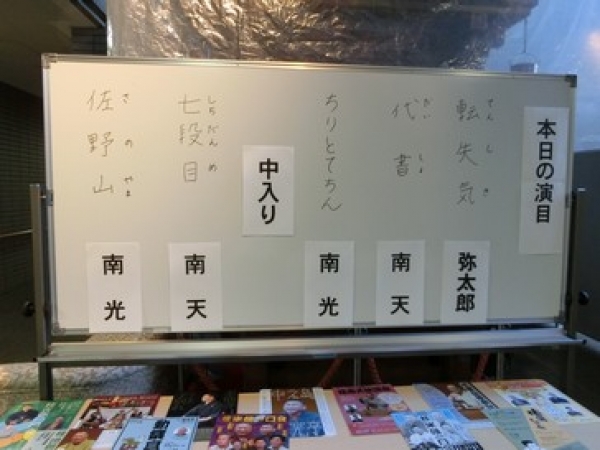 本日の演目
転失気
てんしき
弥太郎
代書
だいしょ
南天
ちりとてちん
南光
中入り
七段目
しちだんめ
南天
佐野山
さのやま
南光